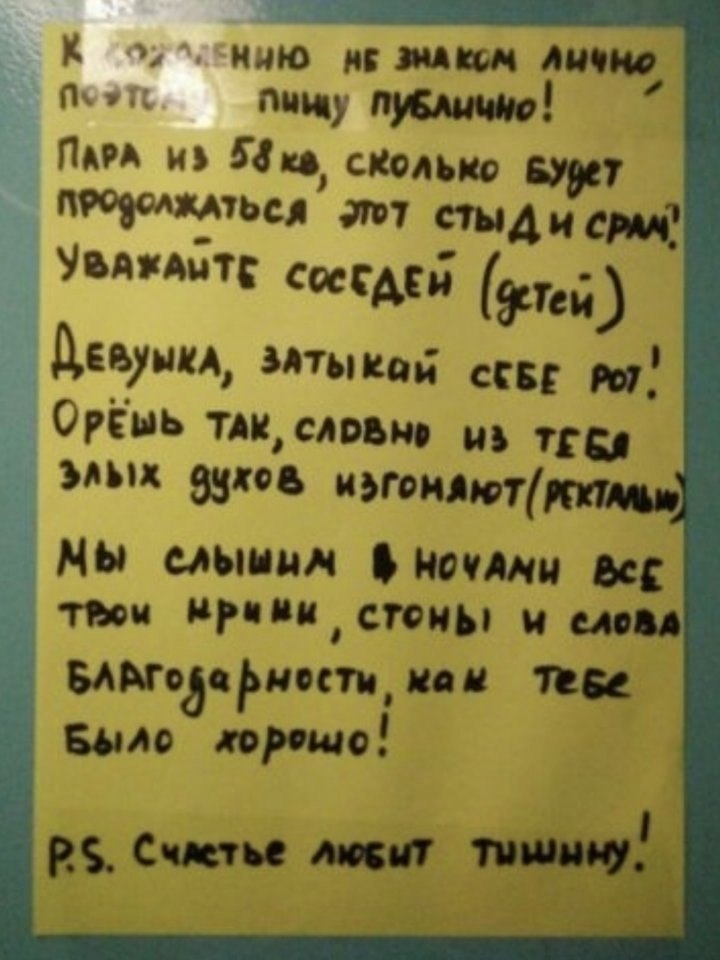 К сожалению не знаком лично,
поэтому пишу публично!
Пара из 58 кв, сколько будет
продолжаться этот стыд и срам!
Уважайте соседей (детей)
Девушка, затыкай себе рот!
Орёшь так, словно из тебя
злых духов изгоняют (ректально)
Мы слышим ночами все
твои крики, стоны и слова
благодарности, как тебе
было хорошо!
P.S. Счастье любит тишину!